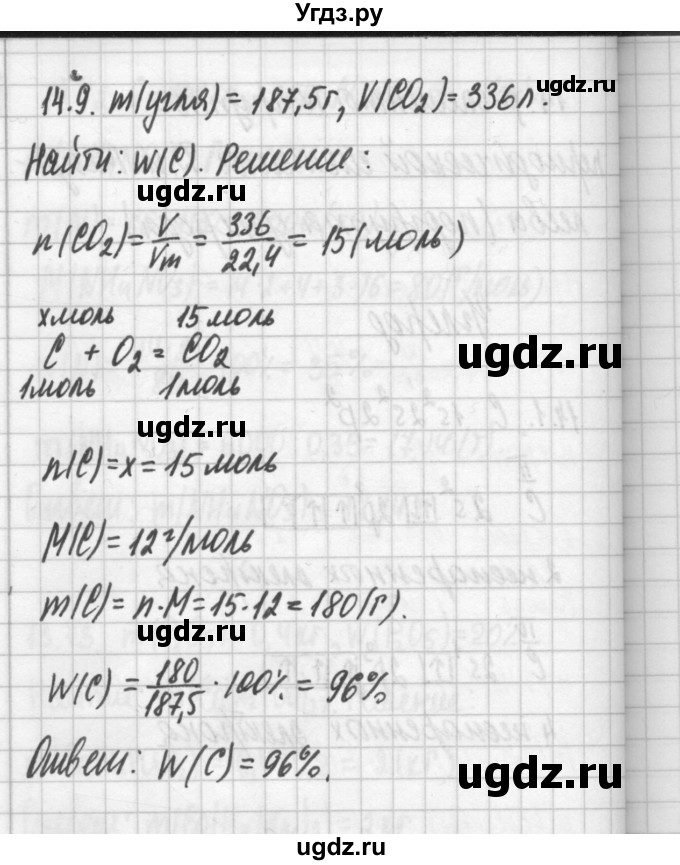 Угдз.ру
14.9. m(угля) = 187,5г, V(CO₂) = 336 л.
Найти: W(C). Решение:
n(CO₂) = V/Vm = 336/22,4 = 15(моль)
x моль 15 моль
C + O₂ = CO₂
1 моль 1 моль
n(C) = x = 15 моль
M(C) = 12 г/моль
m(C) = n·M = 15·12 = 180(г).
W(C) = 180/187,5 · 100% = 96%
Ответ: W(C) = 96%.
ugdz.ru
ugdz.ru
ugdz.ru
ugdz.ru
ugdz.ru
ugdz.ru
ugdz.ru
ugdz.ru
ugdz.ru